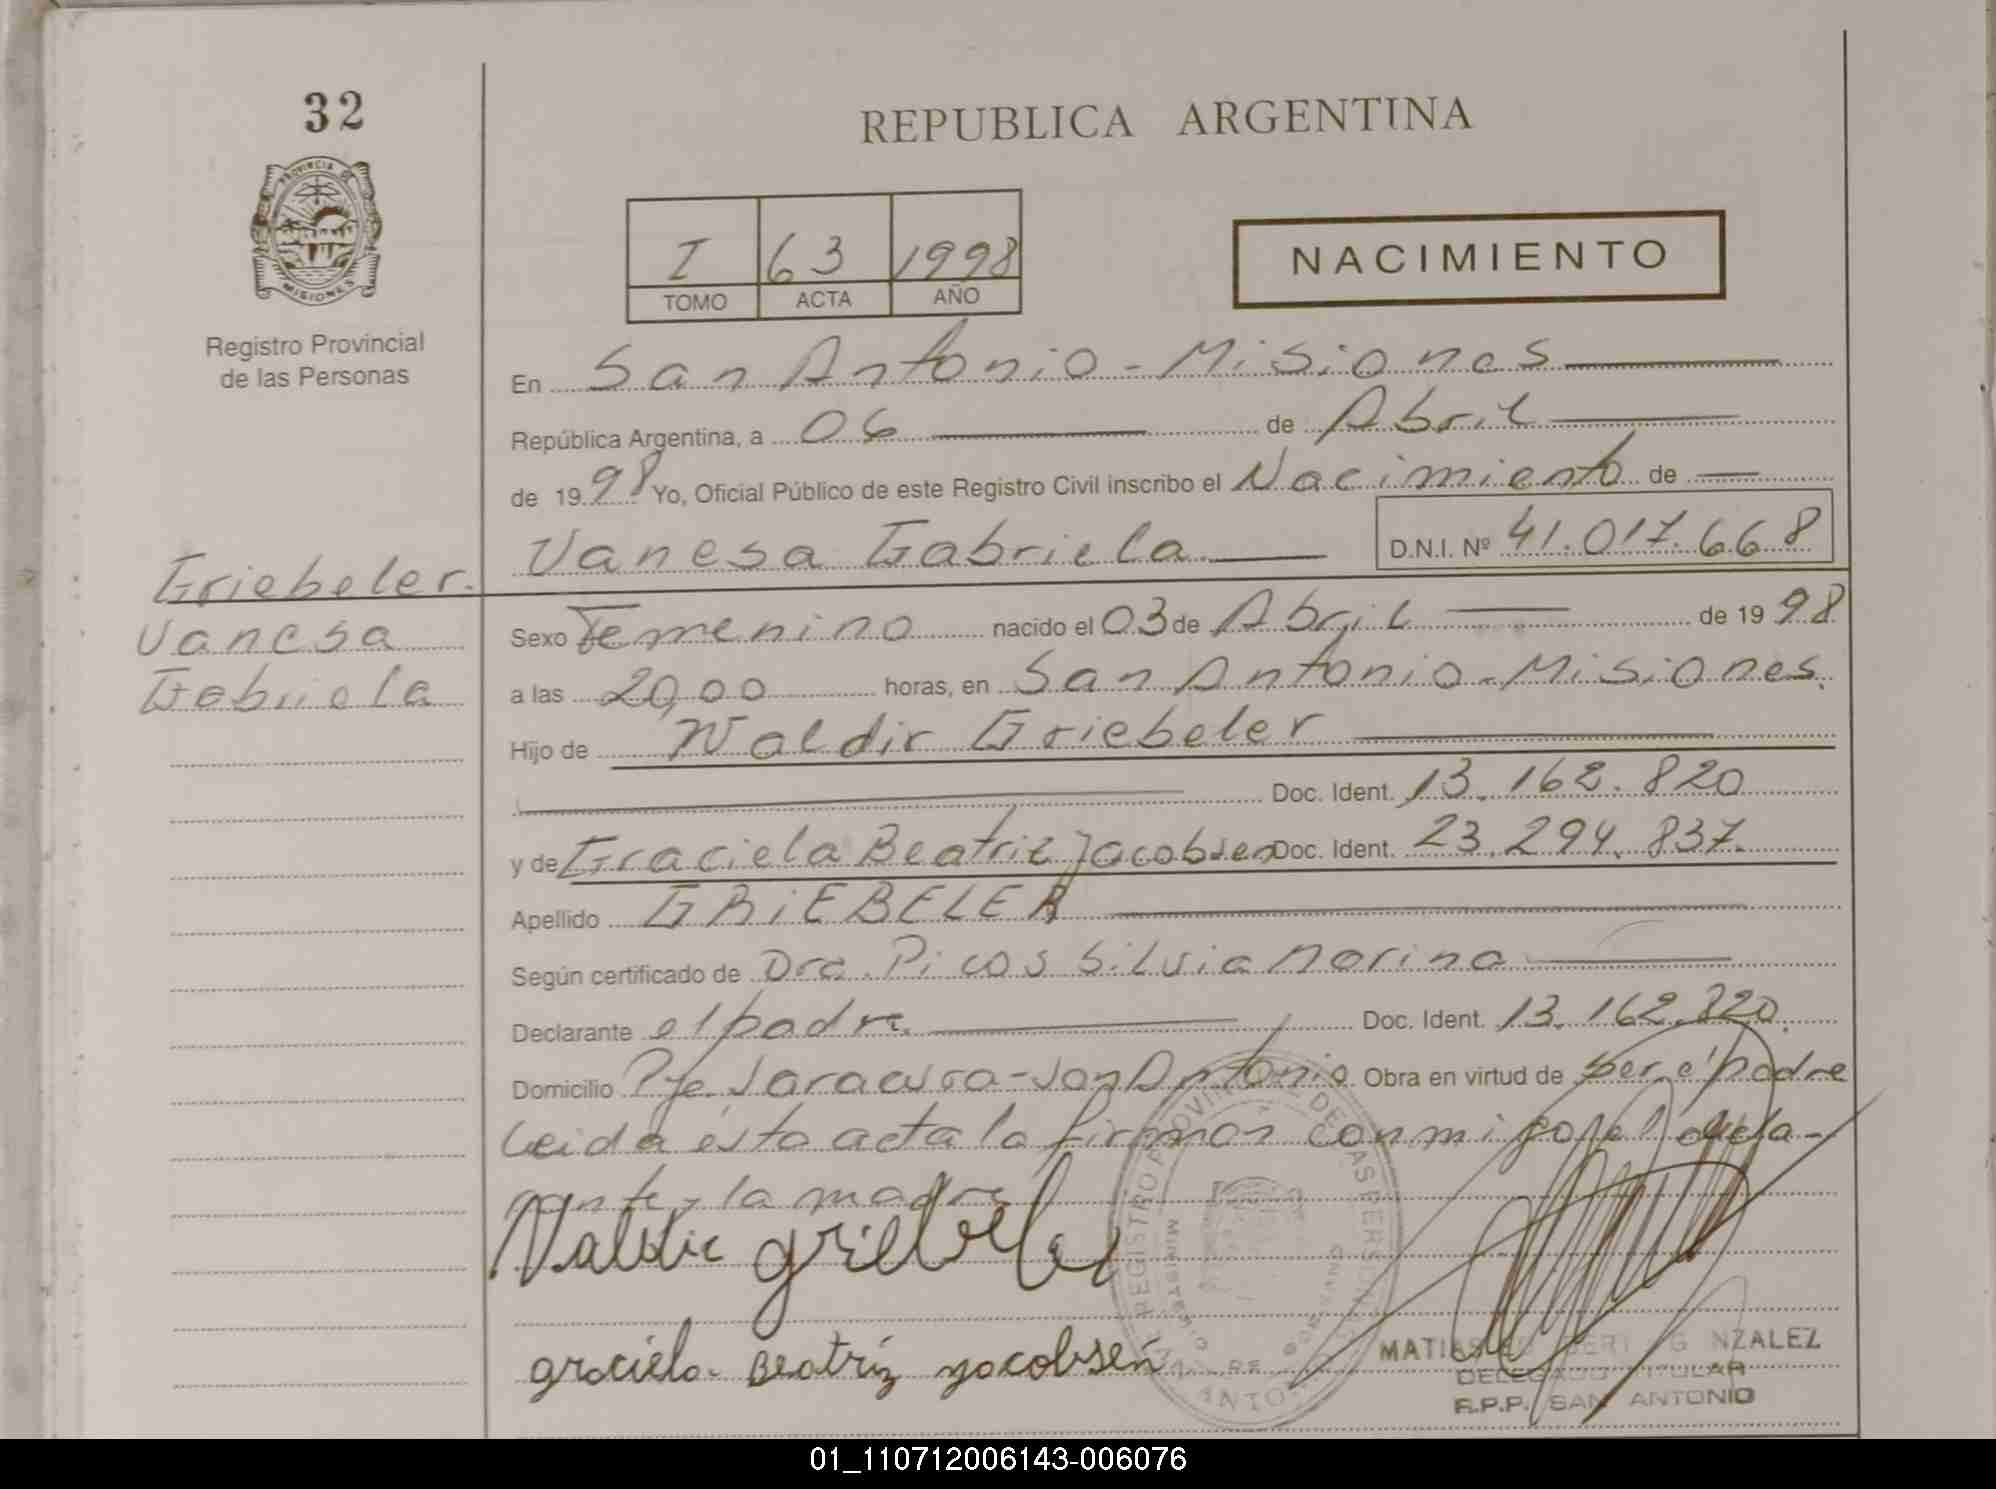 32
PROVINCIA DE
MISIONES
Registro Provincial
de las Personas
Griebeler.
Vanesa
Gabriela
REPUBLICA ARGENTINA
I 63 1998
TOMO ACTA AÑO
NACIMIENTO
En San Antonio - Misiones
República Argentina, a 06 de Abril
de 1998 Yo, Oficial Público de este Registro Civil inscribo el Nacimiento de
Vanesa Gabriela D.N.I. Nº 41.017.668
Sexo Femenino nacido el 03 de Abril de 1998
a las 20,00 horas, en San Antonio - Misiones.
Hijo de Waldir Griebeler
Doc. Ident. 13.162.820
y de Graciela Beatriz Jacobsen Doc. Ident. 23.294.837.
Apellido GRIEBELER
Según certificado de Dra. Picos Silvia Norina
Declarante el padre Doc. Ident. 13.162.820
Domicilio Pje. Saracura - San Antonio Obra en virtud de ser el padre
Leida ésta acta la firman conmigo el decla-
rante y la madre
Waldir Griebeler
graciela Beatriz yacobsen
REGISTRO PROVINCIAL DE LAS PERSONAS
MINISTERIO DE GOBIERNO
MATIAS GONZALEZ
DELEGADO TITULAR
R.P.P. SAN ANTONIO
01_110712006143-006076